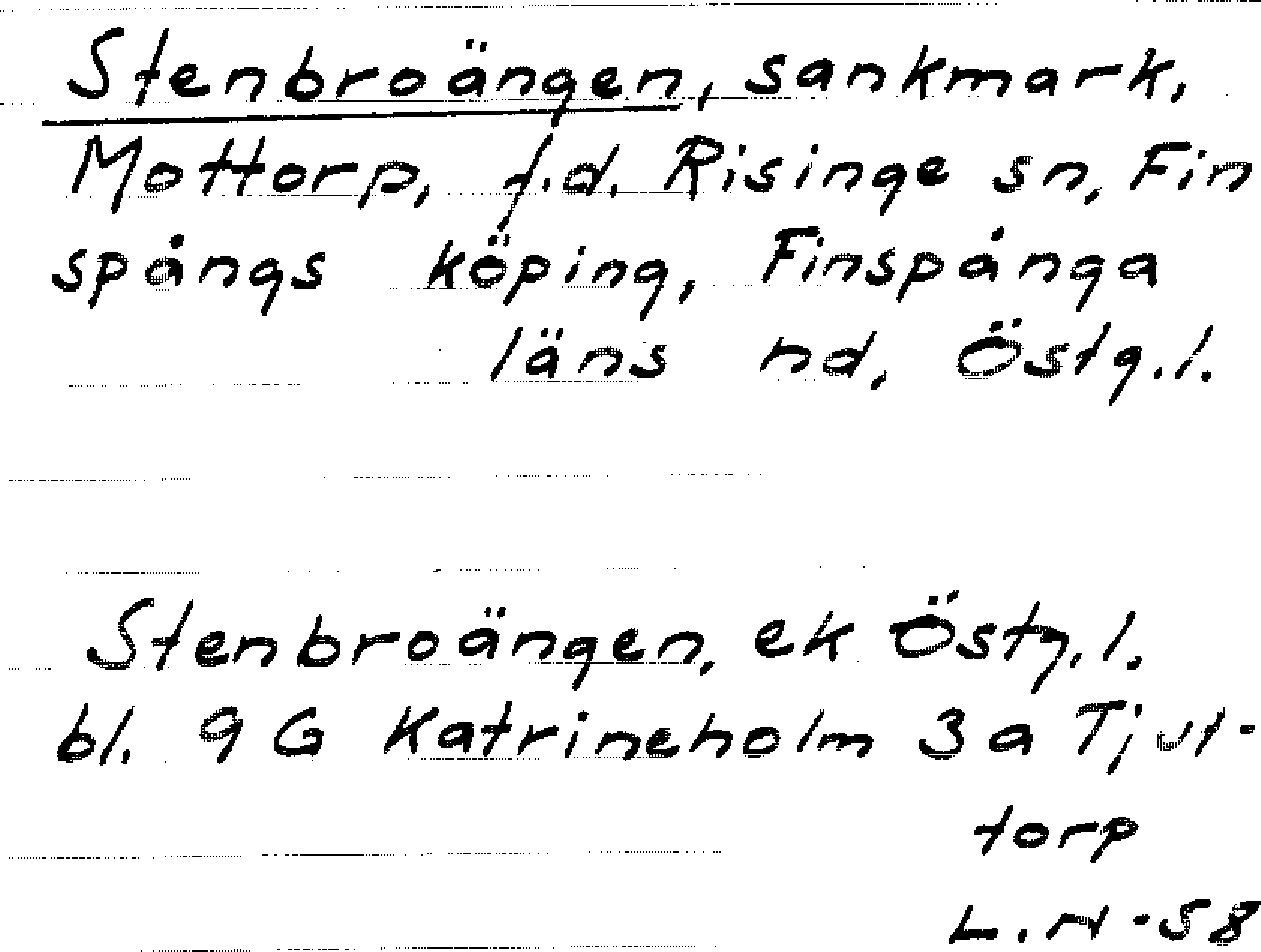 Stenbroängen, sankmark,
Mottorp, f.d. Risinge sn, Fin
spångs köping, Finspånga
läns hd, Östg.l.
Stenbroängen, ek Östg.l.
bl. 9 G Katrineholm 3 a Tjut-
torp
L.H -58